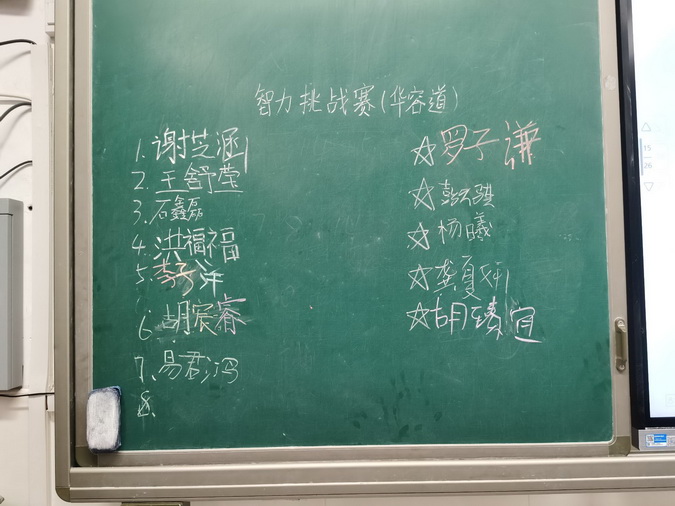 智力挑战赛(华容道)
1. 谢芝涵
2. 王舒莹
3. 石鑫磊
4. 洪福福
5. 李子洋
6. 胡宸睿
7. 易君冯
8.
☆罗子谦
☆彭云骐
☆杨曦
☆龚夏轩
☆胡臻宜
15
26